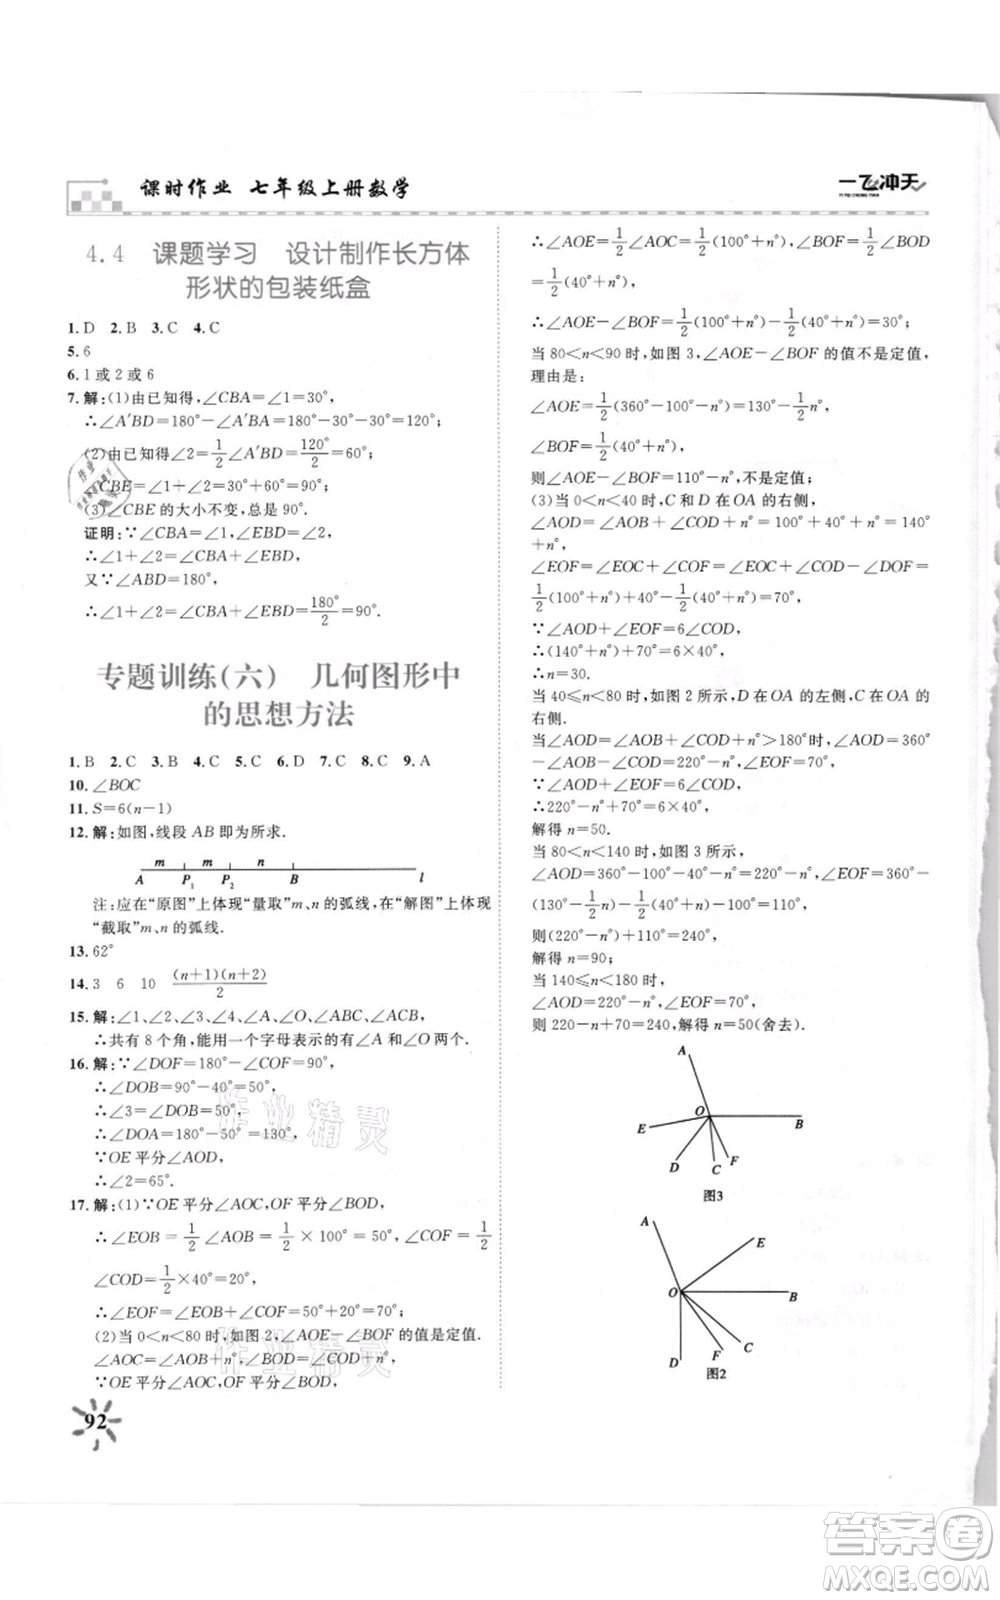 课时作业 七年级上册数学
一飞冲天
YI FEI CHONG TIAN
4.4 课题学习 设计制作长方体
形状的包装纸盒
1.D 2.B 3.C 4.C
5.6
6.1 或 2 或 6
7.解:(1)由已知得,∠CBA=∠1=30°,
∴∠A′BD=180°-∠A′BA=180°-30°-30°=120°;
(2)由已知得∠2=1/2∠A′BD=120°/2=60°,
∠CBE=∠1+∠2=30°+60°=90°;
(3)∠CBE 的大小不变,总是 90°.
证明:∵∠CBA=∠1,∠EBD=∠2,
∴∠1+∠2=∠CBA+∠EBD,
又∵∠ABD=180°,
∴∠1+∠2=∠CBA+∠EBD=180°/2=90°.
专题训练(六) 几何图形中
的思想方法
1.B 2.C 3.C 4.C 5.C 6.D 7.C 8.C 9.A
10.∠BOC
11.S=6(n-1)
12.解:如图,线段 AB 即为所求.
m m n
A P₁ P₂ B l
注:应在“原图”上体现“量取”m、n 的弧线,在“解图”上体现
“截取”m、n 的弧线.
13.62°
14.3 6 10 (n+1)(n+2)/2
15.解:∠1、∠2、∠3、∠4、∠A、∠O、∠ABC、∠ACB,
∴共有 8 个角,能用一个字母表示的有∠A 和∠O 两个.
16.解:∵∠DOF=180°-∠COF=90°,
∴∠DOB=90°-40°=50°,
∴∠3=∠DOB=50°,
∴∠DOA=180°-50°=130°,
∵OE 平分∠AOD,
∴∠2=65°.
17.解:(1)∵OE 平分∠AOC,OF 平分∠BOD,
∴∠EOB=1/2∠AOB=1/2×100°=50°,∠COF=1/2
∠COD=1/2×40°=20°,
∴∠EOF=∠EOB+∠COF=50°+20°=70°;
(2)当 0<n<80 时,如图 2,∠AOE-∠BOF 的值是定值.
∵∠AOC=∠AOB+n°,∠BOD=∠COD+n°,
∵OE 平分∠AOC,OF 平分∠BOD,
92
∴∠AOE=1/2∠AOC=1/2(100°+n°),∠BOF=1/2∠BOD
=1/2(40°+n°),
∴∠AOE-∠BOF=1/2(100°+n°)-1/2(40°+n°)=30°;
当 80<n<90 时,如图 3,∠AOE-∠BOF 的值不是定值,
理由是:
∠AOE=1/2(360°-100°-n°)=130°-1/2n°,
∠BOF=1/2(40°+n°),
则∠AOE-∠BOF=110°-n°,不是定值;
(3)当 0<n<40 时,C 和 D 在 OA 的右侧,
∠AOD=∠AOB+∠COD+n°=100°+40°+n°=140°
+n°,
∠EOF=∠EOC+∠COF=1/2∠AOC+1/2∠COD=
1/2(100°+n°)+1/2(40°-n°)=70°,
∵∠AOD+∠EOF=6∠COD,
∴(140°+n°)+70°=6×40°,
∴n=30.
当 40≤n<80 时,如图 2 所示,D 在 OA 的左侧,C 在 OA 的
右侧.
当∠AOD=∠AOB+∠COD+n°>180°时,∠AOD=360°
-∠AOB-∠COD-n°=220°-n°,∠EOF=70°,
∵∠AOD+∠EOF=6∠COD,
∴220°-n°+70°=6×40°,
解得 n=50.
当 80<n<140 时,如图 3 所示,
∠AOD=360°-100°-40°-n°=220°-n°,∠EOF=360°
-(130°-1/2n)-1/2(40°+n)-100°=140°,
则(220°-n°)+140°=240°,
解得 n=90;
当 140≤n<180 时,
∠AOD=220°-n°,∠EOF=70°,
则 220-n+70=240,解得 n=50(舍去).
A
O
E
B
D
C
F
图3
A
E
O
B
C
F
D
图2
作业精灵
作业精灵
答案卷